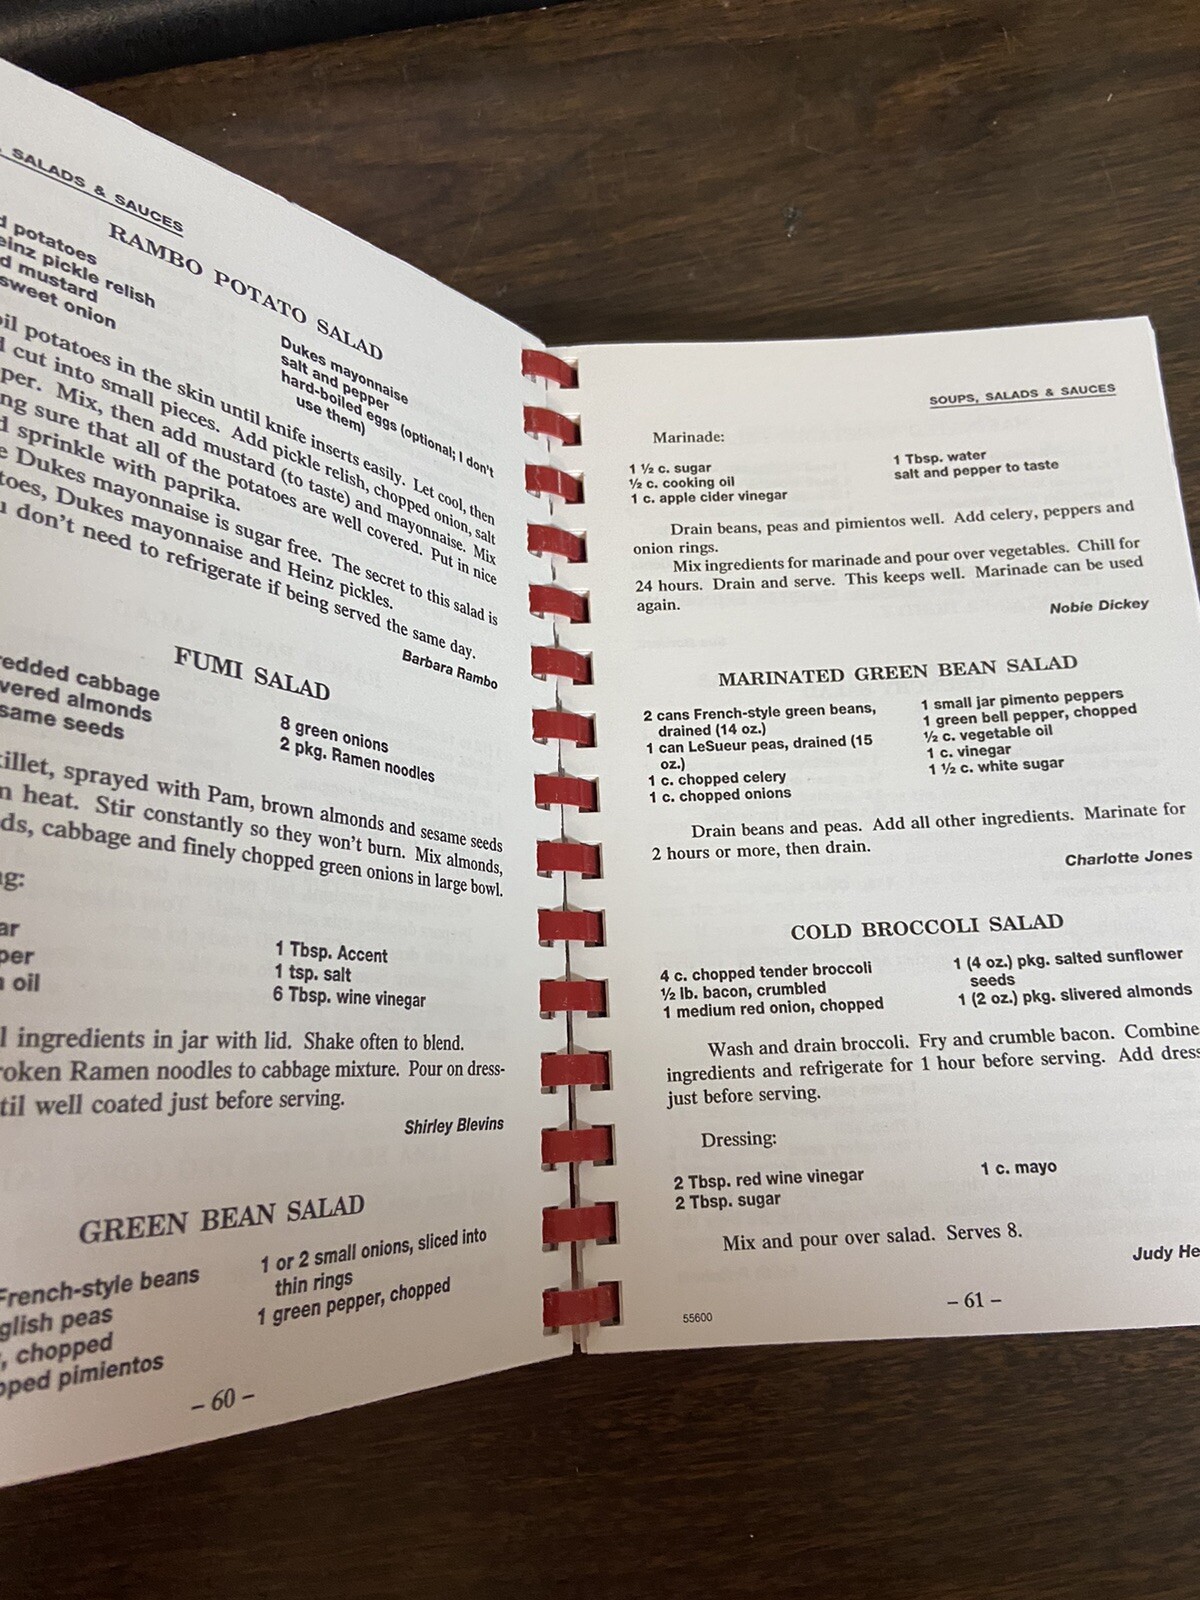 SALADS & SAUCES
RAMBO POTATO SALAD
potatoes
pickle relish
mustard
sweet onion
Dukes mayonnaise
salt and pepper
hard-boiled eggs (optional; I don't
use them)
potatoes in the skin until knife inserts easily. Let cool, then
cut into small pieces. Add pickle relish, chopped onion, salt
Mix, then add mustard (to taste) and mayonnaise. Mix
sure that all of the potatoes are well covered. Put in nice
sprinkle with paprika.
Dukes mayonnaise is sugar free. The secret to this salad is
Dukes mayonnaise and Heinz pickles.
don't need to refrigerate if being served the same day.
Barbara Rambo
FUMI SALAD
cabbage
almonds
seeds
8 green onions
2 pkg. Ramen noodles
sprayed with Pam, brown almonds and sesame seeds
heat. Stir constantly so they won't burn. Mix almonds,
cabbage and finely chopped green onions in large bowl.
oil
1 Tbsp. Accent
1 tsp. salt
6 Tbsp. wine vinegar
ingredients in jar with lid. Shake often to blend.
Ramen noodles to cabbage mixture. Pour on dress-
well coated just before serving.
Shirley Blevins
GREEN BEAN SALAD
French-style beans
peas
chopped
pimientos
1 or 2 small onions, sliced into
thin rings
1 green pepper, chopped
– 60 –
SOUPS, SALADS & SAUCES
Marinade:
1 ½ c. sugar
½ c. cooking oil
1 c. apple cider vinegar
1 Tbsp. water
salt and pepper to taste
Drain beans, peas and pimientos well. Add celery, peppers and
onion rings.
Mix ingredients for marinade and pour over vegetables. Chill for
24 hours. Drain and serve. This keeps well. Marinade can be used
again.
Nobie Dickey
MARINATED GREEN BEAN SALAD
2 cans French-style green beans,
drained (14 oz.)
1 can LeSueur peas, drained (15
oz.)
1 c. chopped celery
1 c. chopped onions
1 small jar pimento peppers
1 green bell pepper, chopped
½ c. vegetable oil
1 c. vinegar
1 ½ c. white sugar
Drain beans and peas. Add all other ingredients. Marinate for
2 hours or more, then drain.
Charlotte Jones
COLD BROCCOLI SALAD
4 c. chopped tender broccoli
½ lb. bacon, crumbled
1 medium red onion, chopped
1 (4 oz.) pkg. salted sunflower
seeds
1 (2 oz.) pkg. slivered almonds
Wash and drain broccoli. Fry and crumble bacon. Combine
ingredients and refrigerate for 1 hour before serving. Add dress
just before serving.
Dressing:
2 Tbsp. red wine vinegar
2 Tbsp. sugar
1 c. mayo
Mix and pour over salad. Serves 8.
Judy He
– 61 –
55600